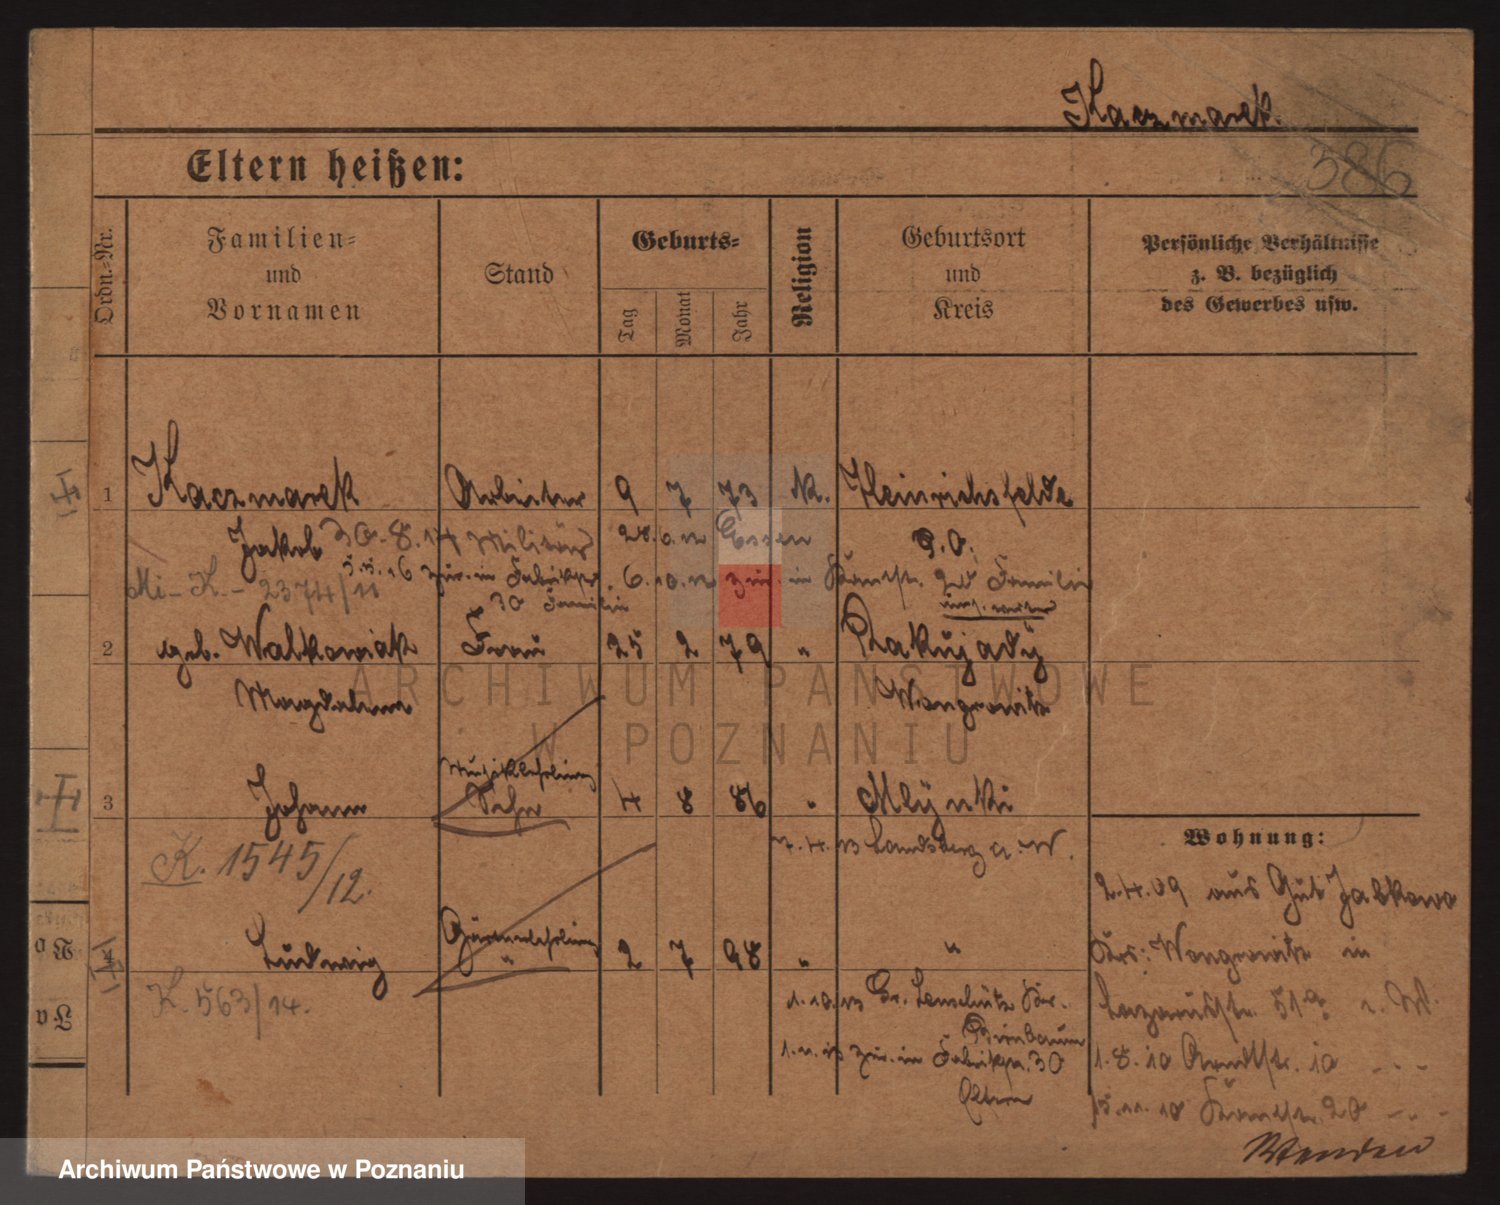 Kaczmarek.
386
Eltern heißen:
Ordn.-Nr.
Familien- und Vornamen
Stand
Geburts-
Tag
Monat
Jahr
Religion
Geburtsort und Kreis
Persönliche Verhältnisse z. B. bezüglich des Gewerbes usw.
1 Kaczmarek Arbeiter 9 7 73 K. Heinrichsfelde
Jakob 30.8.14 Militär Essen P.O.
5.5.16 zur. in Fabrikstr. 6.10. zur. in 20 Familie
Mi-K.- 2374/11
30 Familie
2 geb. Walkowiak Frau 25 2 79 " Rakujady
Magdalena Wongrowitz
Musiklehrling
3 Johann Sohn 4 8 86 " Mlynki
7.4.13 Landsberg a. W.
K. 1545/12.
Gärtnerlehrling
4 Ludwig " 2 7 98 " "
K. 563/14.
1.10.13 Gr. Kr.
Birnbaum
zur. in Fabrikstr. 30
Eltern
Wohnung:
2.4.09 aus Gut Jabkowo
Krs: Wongrowitz in
Lazarusstr. 51a
1.8.10 Arndtstr. 10
15.11.10 20
Wenden
No
La
ARCHIWUM PAŃSTWOWE
W POZNANIU
Archiwum Państwowe w Poznaniu